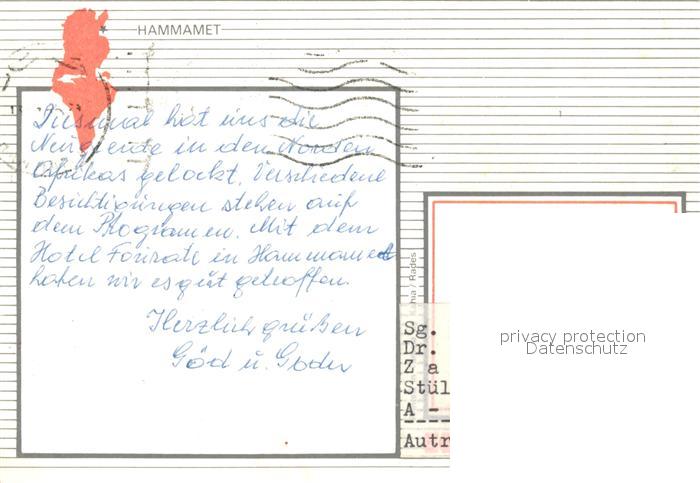 HAMMAMET
Diesmal hat uns die
Neugierde in den Norden
Afrikas gelockt. Verschiedene
Besichtigungen stehen auf
dem Programm. Mit dem
Hotel in Hammamet
haben wir es gut getroffen.
Herzlich grüßen
Göd u.
/ Rades
Sg.
Dr.
Z a
Stül
A -
Autr
privacy protection
Datenschutz